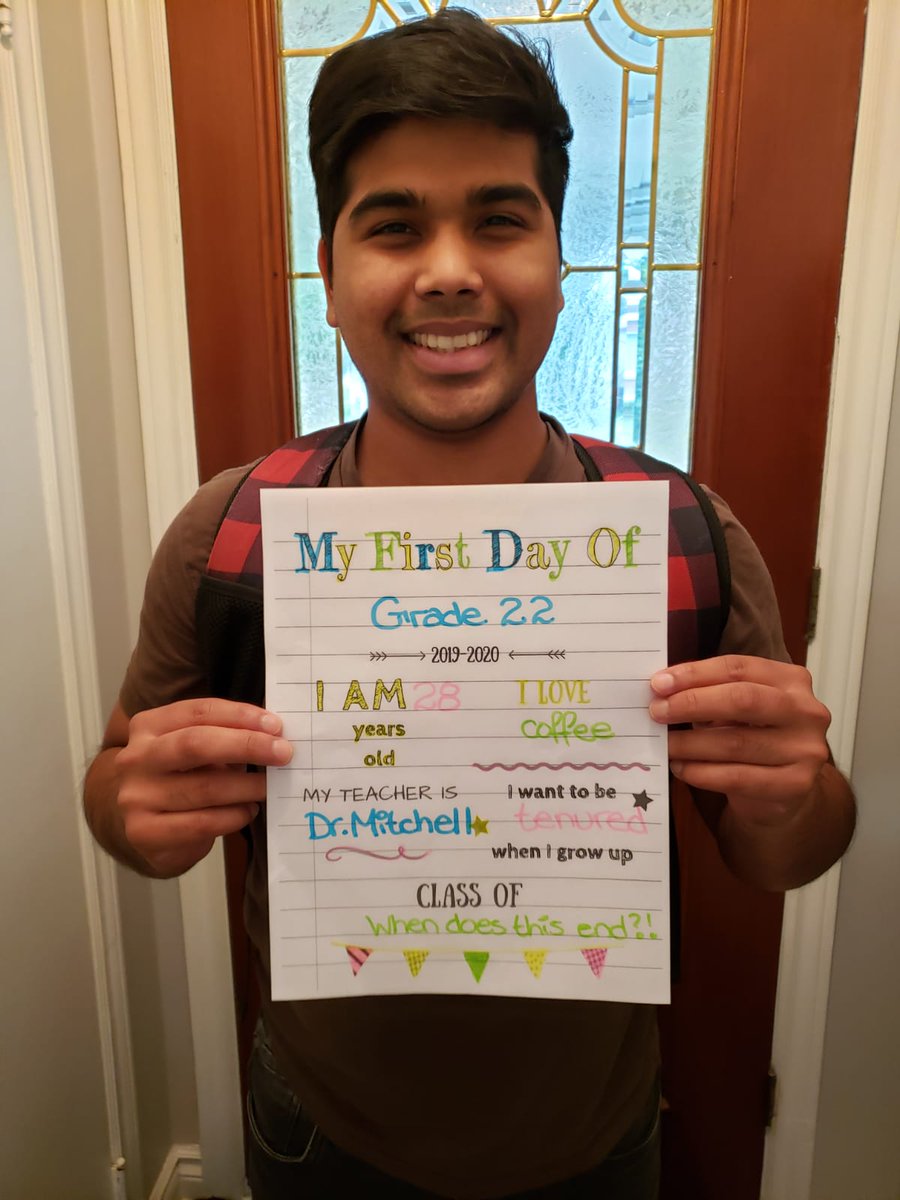 My First Day Of
Grade 22
2019-2020
I AM 28
years
old
I LOVE
coffee
MY TEACHER IS
Dr. Mitchell
I want to be
tenured
when I grow up
CLASS OF
When does this end?!